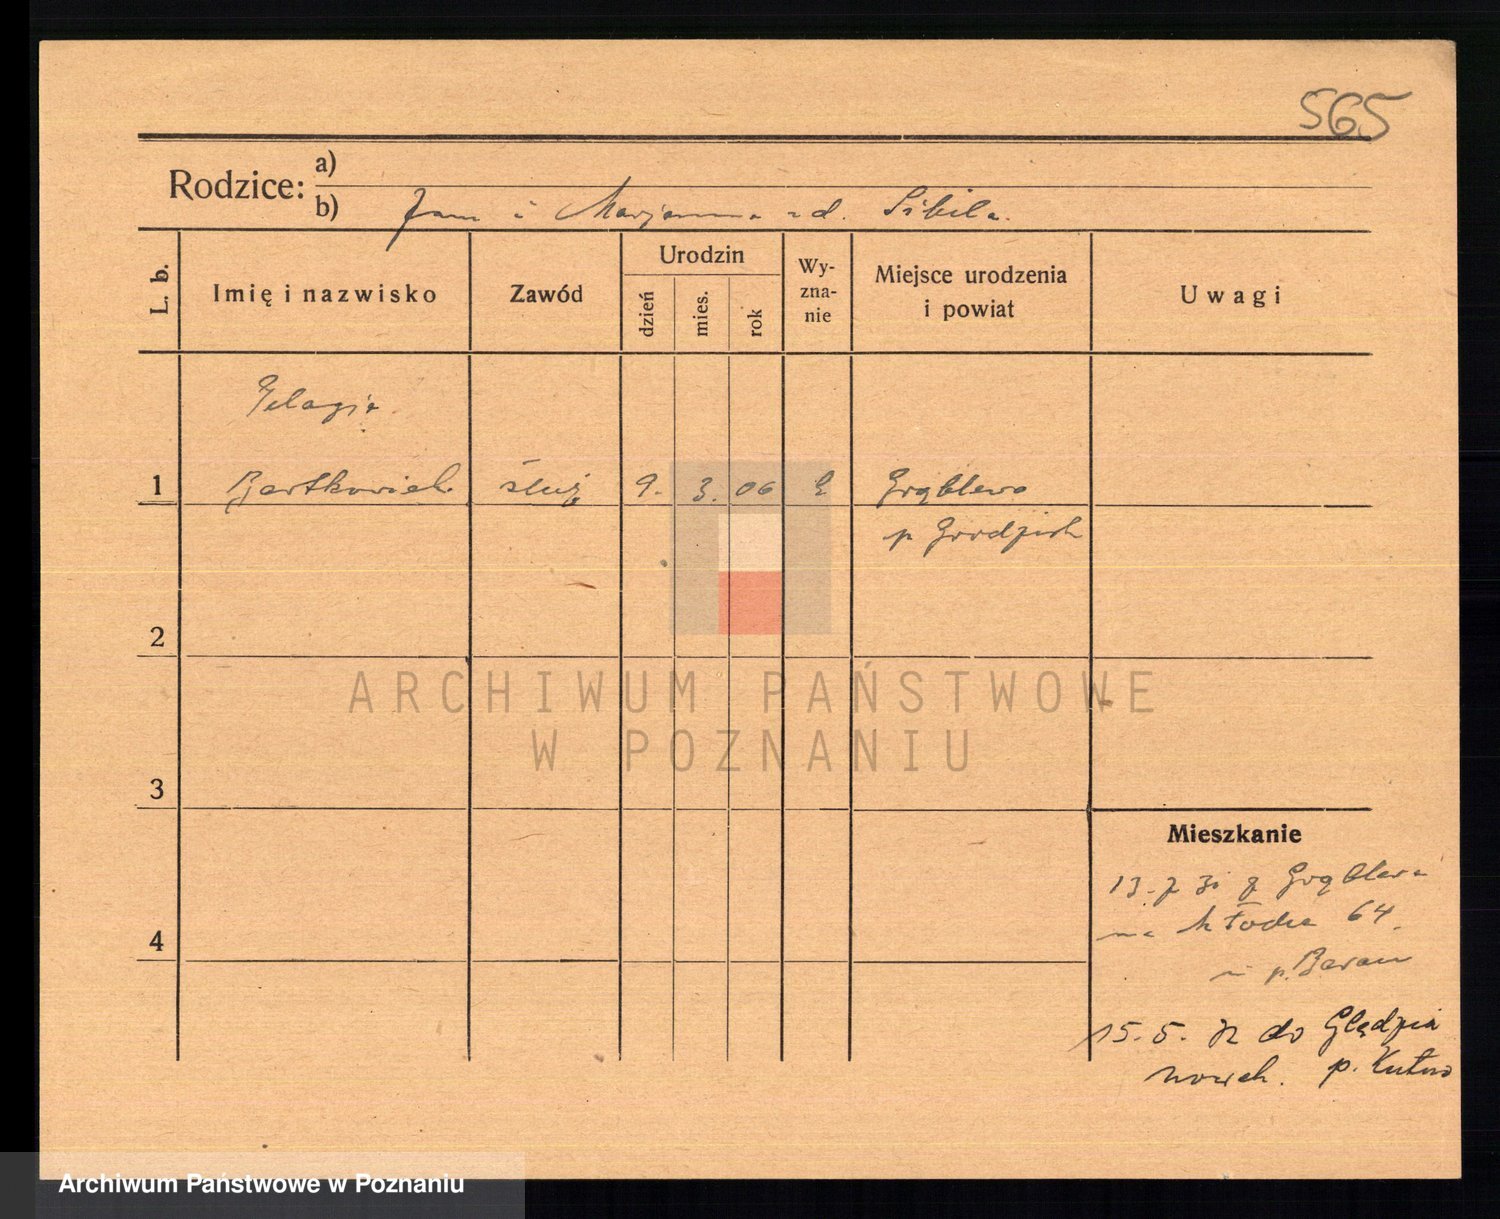 565
Rodzice: a)
b) Jan i Marjanna zd. Sibila.
L. b.
Imię i nazwisko
Zawód
Urodzin
dzień
mies.
rok
Wy-
zna-
nie
Miejsce urodzenia
i powiat
Uwagi
Pelagia
1 Bartkowiak służ 9. 3. 06 Grąblewo
p Grodzisk
2
ARCHIWUM PAŃSTWOWE
W POZNANIU
3
Mieszkanie
13. 7 31 z Grąblewa
na Kłodka 64.
p. Baran
4
15. 5. 32 do
p. Kutno
Archiwum Państwowe w Poznaniu